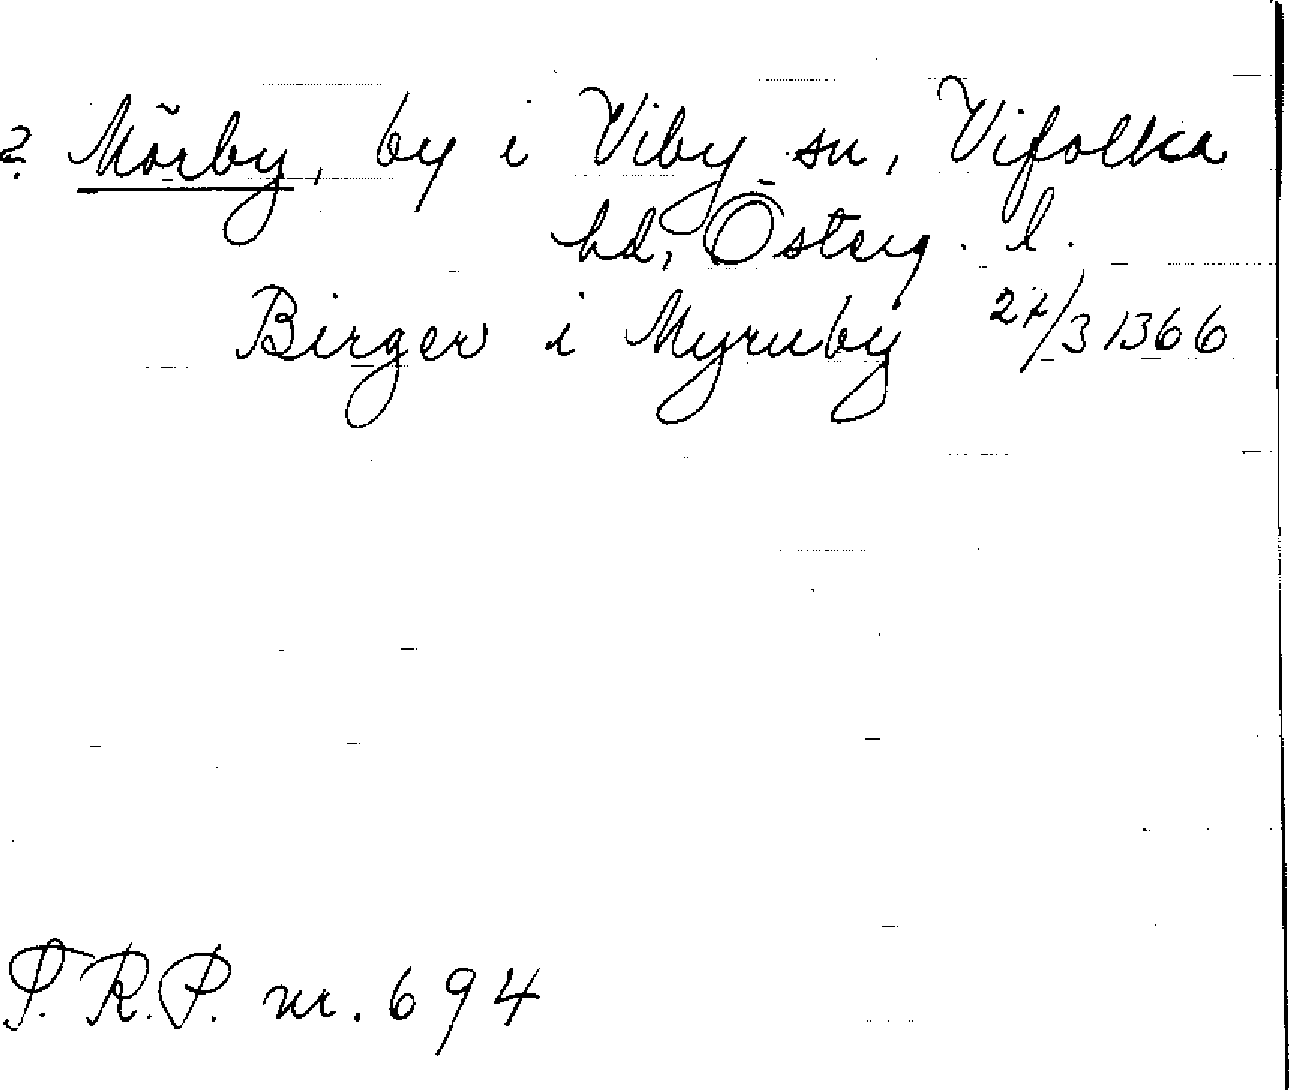 ? Mörby, by i Viby sn, Vifolka
hd, Österg. l.
Birger i Myruby 27/3 1366
S.R.P. nr. 694